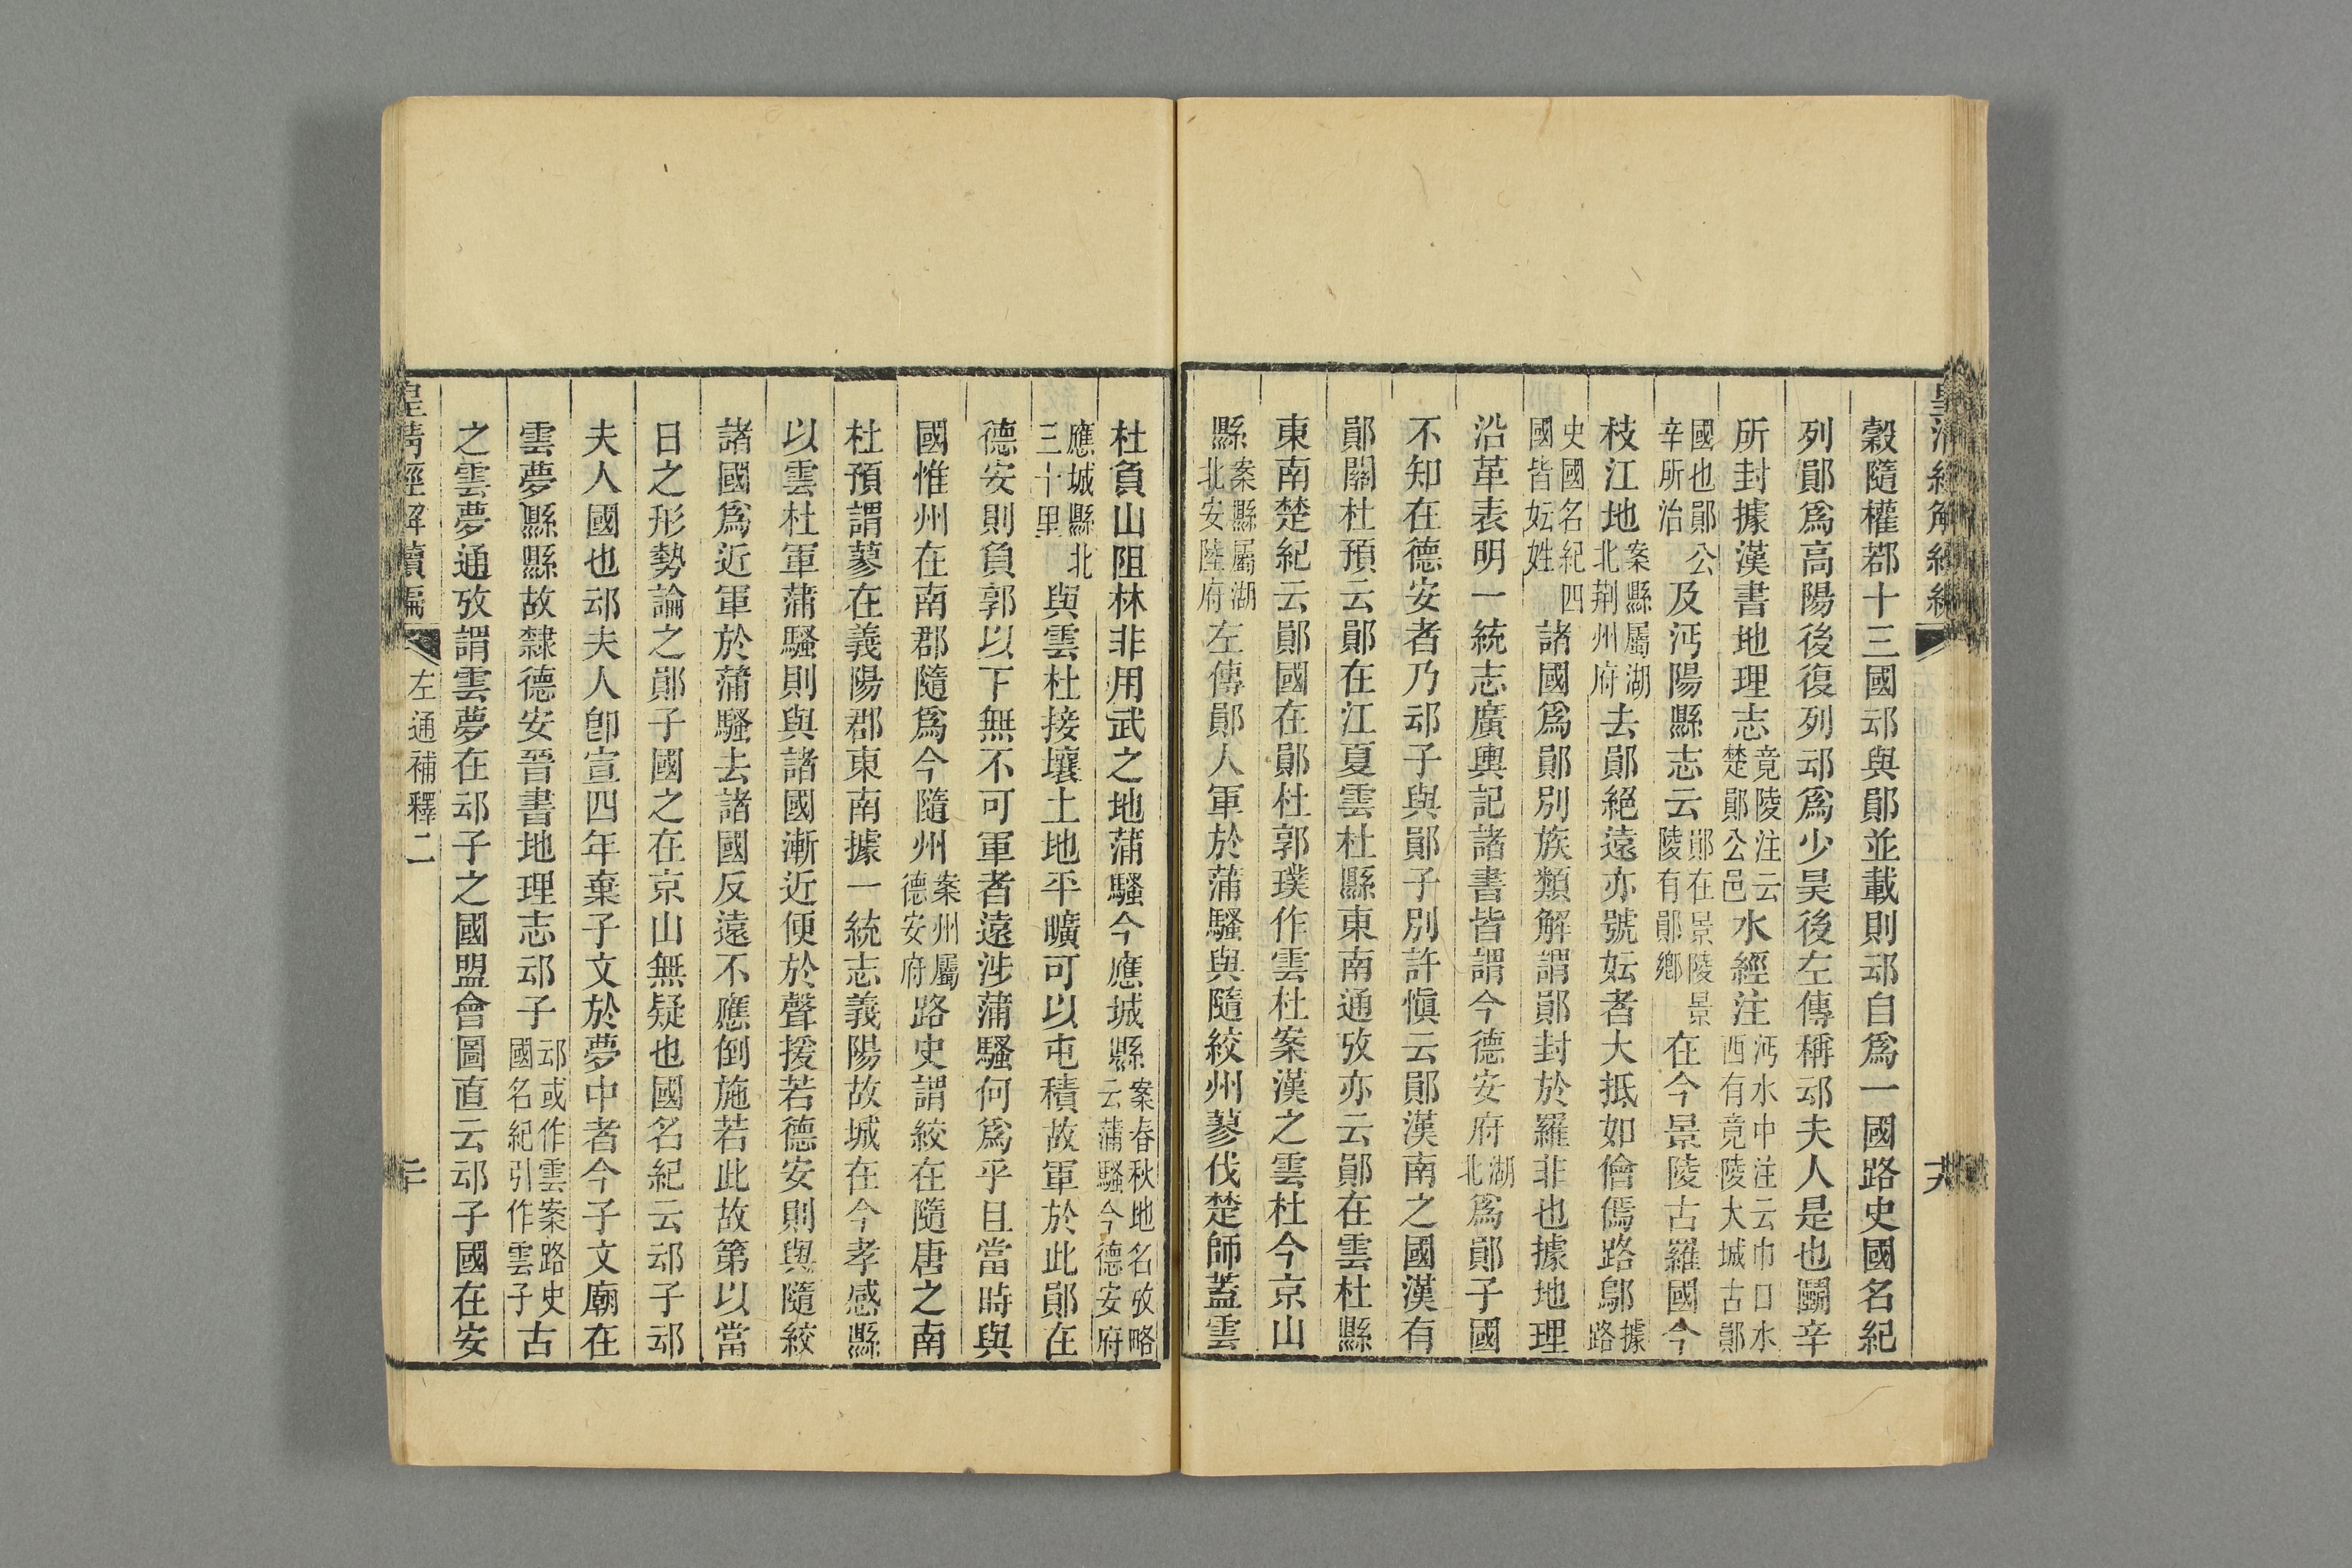 穀隨權鄀十三國䢵與鄖並載則䢵自爲一國路史國名紀
列鄖爲高陽後復列䢵爲少昊後左傳稱䢵夫人是也鬭辛
所封據漢書地理志竟陵注云楚鄖公邑水經注沔水中注云巾口水西有竟陵大城古鄖
國也鄖公辛所治及沔陽縣志云鄖在景陵景陵有鄖鄉在今景陵古羅國今
枝江地案縣屬湖北荆州府去鄖絕遠亦號妘者大抵如儈傿路鄔據路
史國名紀四國皆妘姓諸國爲鄖別族類解謂鄖封於羅非也據地理
沿革表明一統志廣輿記諸書皆謂今德安府湖北爲鄖子國
不知在德安者乃䢵子與鄖子別許愼云鄖漢南之國漢有
鄖關杜預云鄖在江夏雲杜縣東南通攷亦云鄖在雲杜縣
東南楚紀云鄖國在鄖杜郭璞作雲杜案漢之雲杜今京山
縣案縣屬湖北安陸府左傳鄖人軍於蒲騷與隨絞州蓼伐楚師蓋雲
杜負山阻林非用武之地蒲騷今應城縣案春秋地名攷略云蒲騷今德安府
應城縣北三十里與雲杜接壤土地平曠可以屯積故軍於此鄖在
德安則負郭以下無不可軍者遠涉蒲騷何爲乎且當時與
國惟州在南郡隨爲今隨州案州屬德安府路史謂絞在隨唐之南
杜預謂蓼在義陽郡東南據一統志義陽故城在今孝感縣
以雲杜軍蒲騷則與諸國漸近便於聲援若德安則與隨絞
諸國爲近軍於蒲騷去諸國反遠不應倒施若此故第以當
日之形勢論之鄖子國之在京山無疑也國名紀云䢵子䢵
夫人國也䢵夫人卽宣四年棄子文於夢中者今子文廟在
雲夢縣縣故隸德安晉書地理志䢵子䢵或作雲案路史國名紀引作雲子古
之雲夢通攷謂雲夢在䢵子之國盟會圖直云䢵子國在安
皇清經解續編
左通補釋二